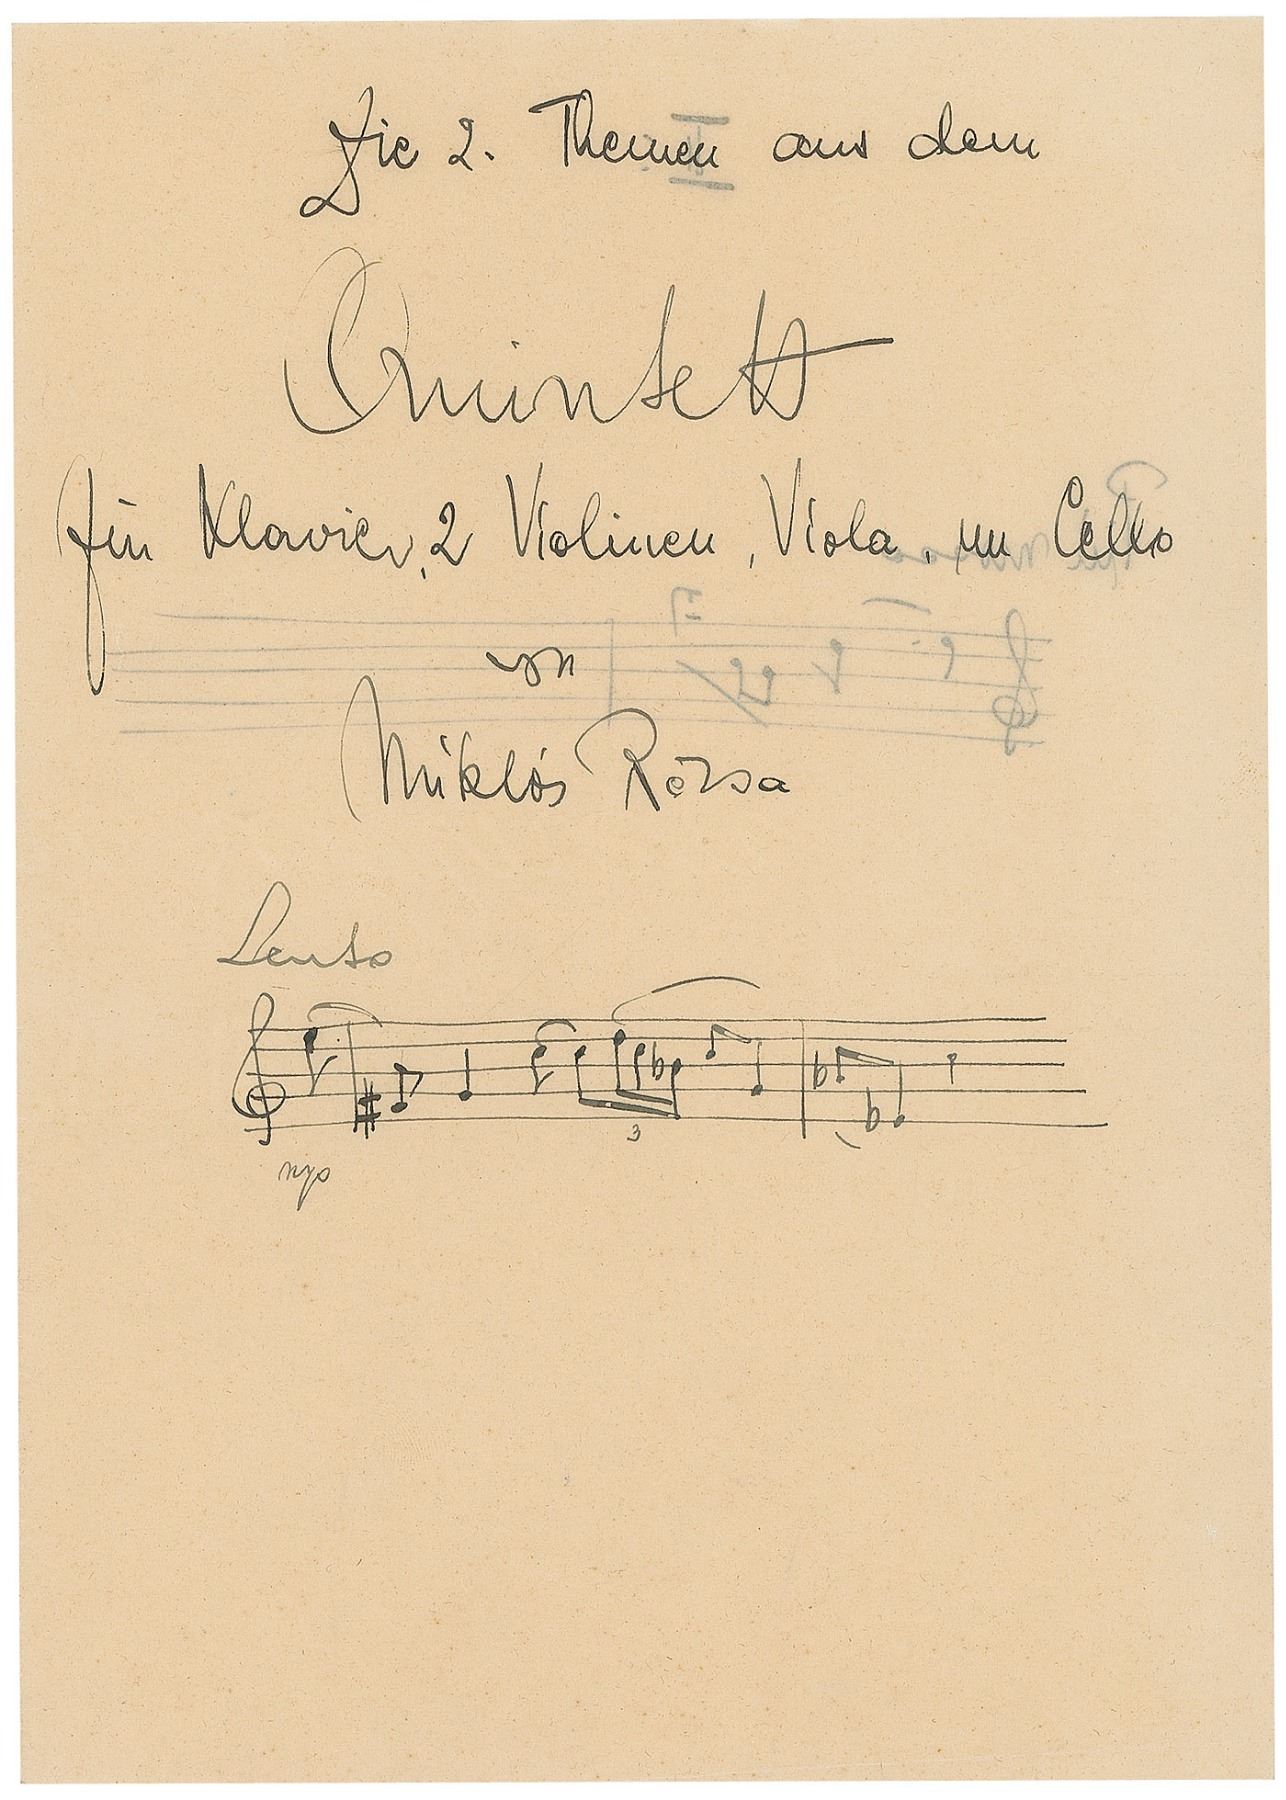 Die 2. Themen aus dem
Quintett
für Klavier, 2 Violinen, Viola, un Cello
von
Miklós Rózsa
Lento
3